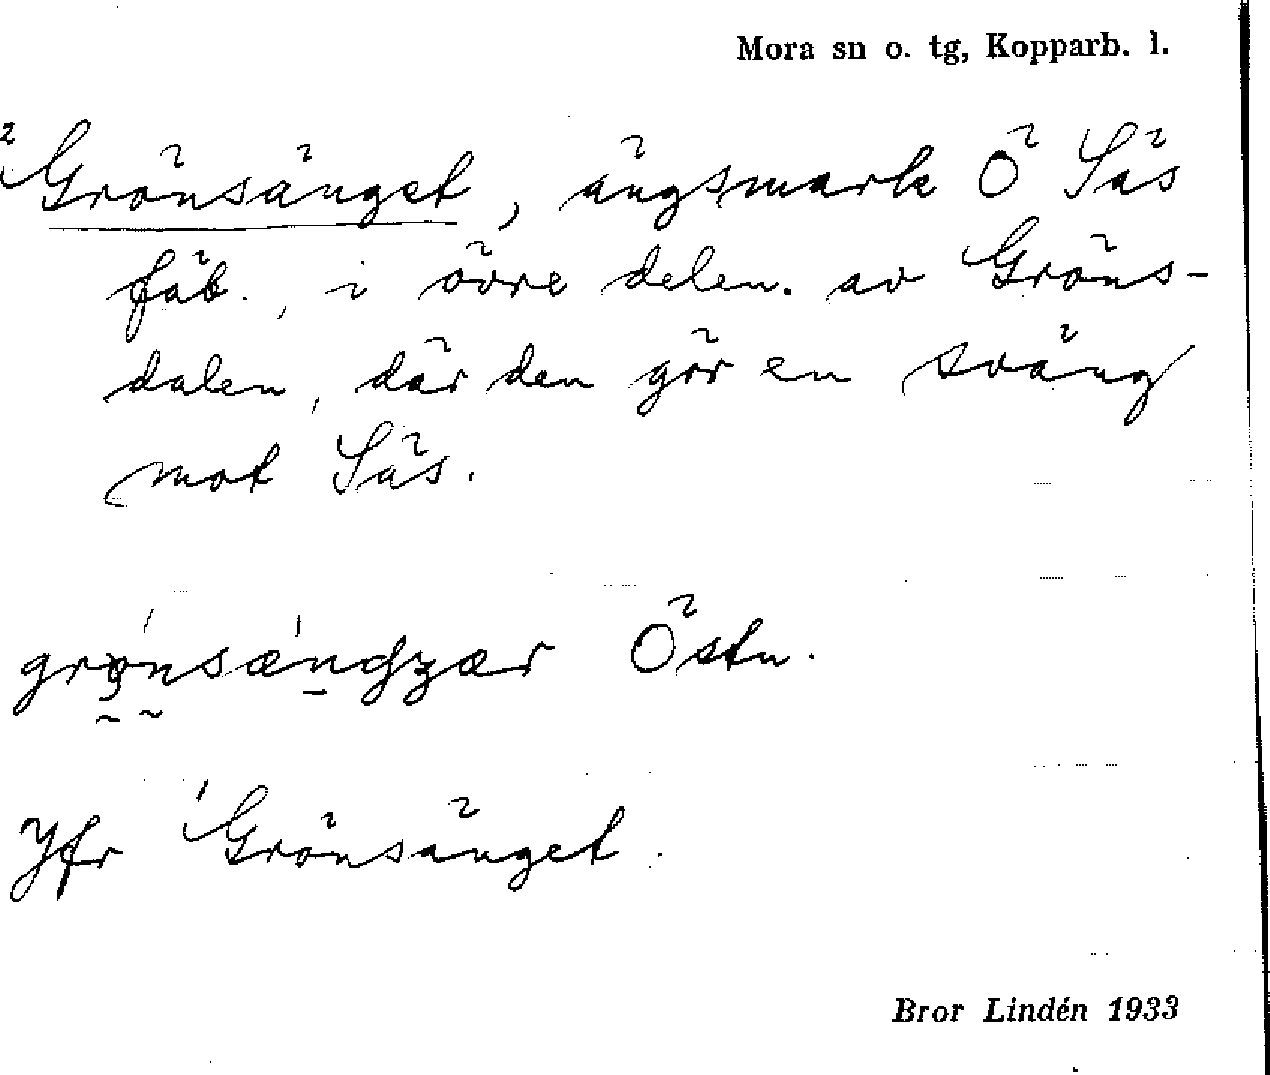 Mora sn o. tg, Kopparb. l.
²Grönsänget, ängsmark Ö Säs
fäb., i övre delen. av Gröns-
dalen, där den gör en sväng
mot Säs.
Östn.
Jfr ¹Grönsänget.
Bror Lindén 1933